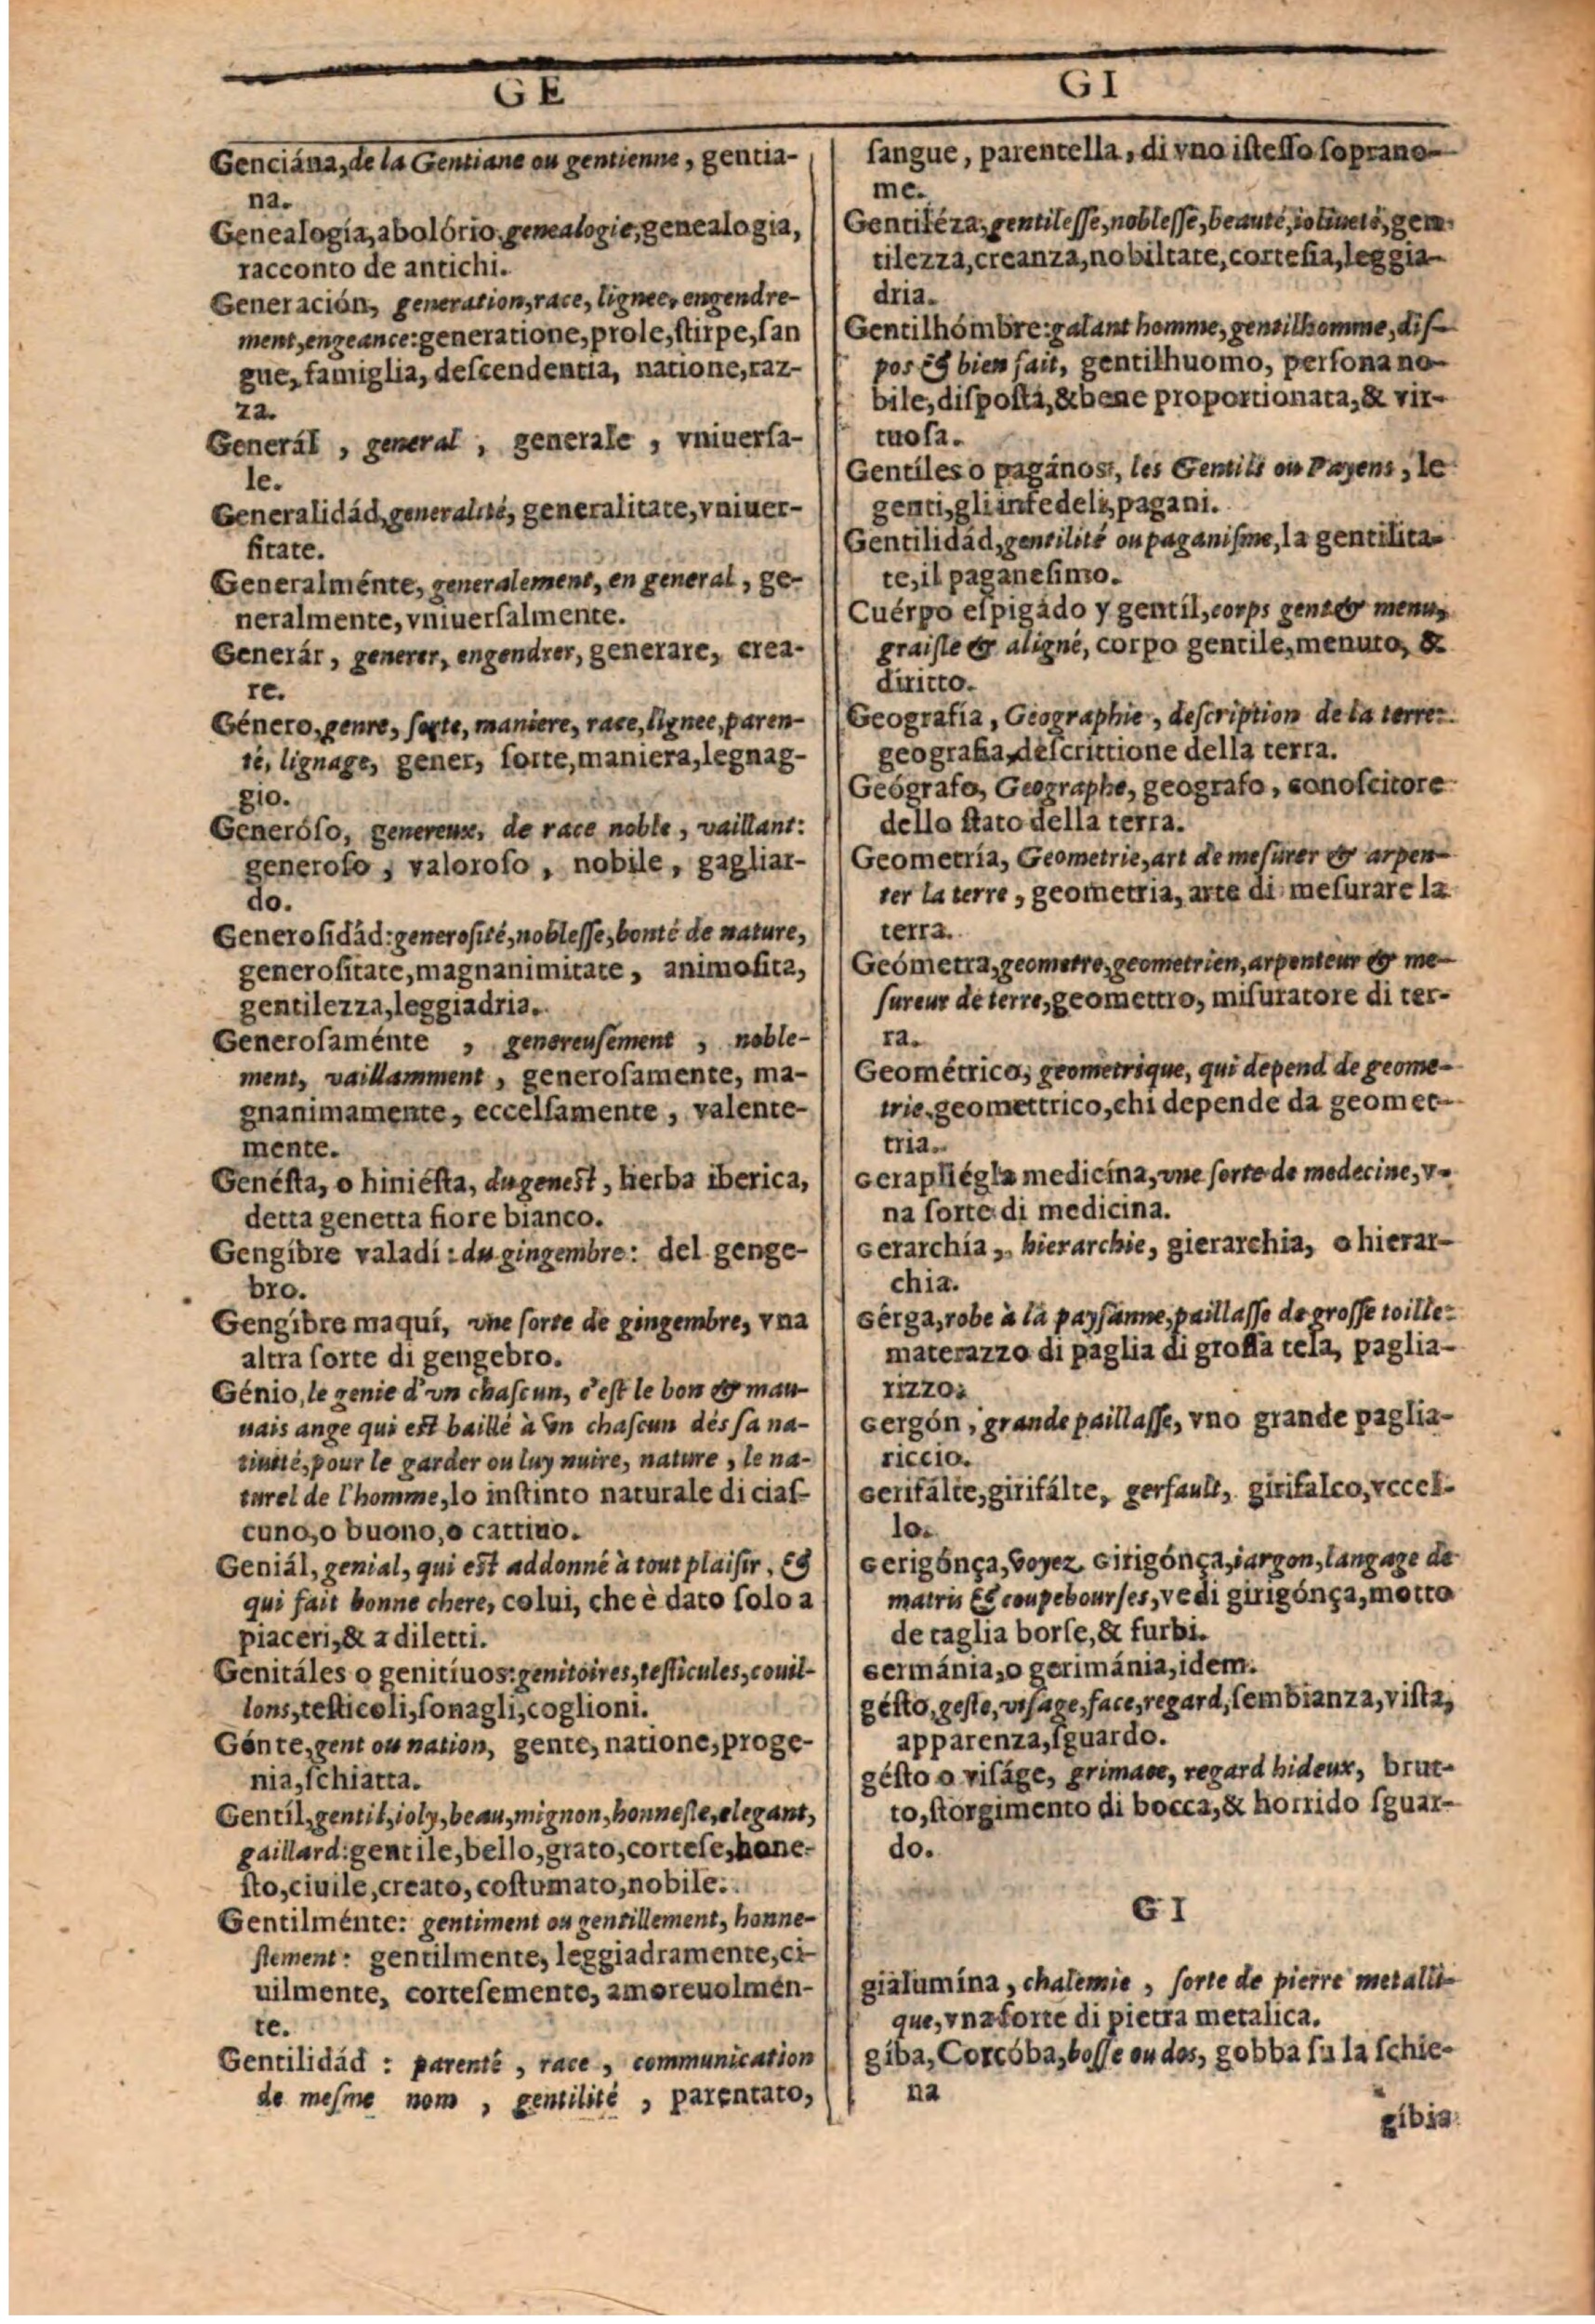 GE
Genciána, de la Gentiane ou gentienne, gentia-
na.
Genealogía, abolório, genealogie, genealogia,
racconto de antichi.
Generación, generation, race, lignee, engendre-
ment, engeance: generatione, prole, ſtirpe, ſan
gue, famiglia, deſcendentia, natione, raz-
za.
Generál, general, generale, vniuerſa-
le.
Generalidád, generalité, generalitate, vniuer-
ſitate.
Generalménte, generalement, en general, ge-
neralmente, vniuerſalmente.
Generár, generer, engendrer, generare, crea-
re.
Género, genre, ſorte, maniere, race, lignee, paren-
té, lignage, gener, ſorte, maniera, legnag-
gio.
Generóſo, genereux, de race noble, vaillant:
generoſo, valoroſo, nobile, gagliar-
do.
Generoſidád: generoſité, nobleſſe, bonté de nature,
generoſitate, magnanimitate, animoſita,
gentilezza, leggiadria.
Generoſaménte, genereuſement, noble-
ment, vaillamment, generoſamente, ma-
gnanimamente, eccelſamente, valente-
mente.
Genéſta, o hiniéſta, du geneſt, herba iberica,
detta genetta fiore bianco.
Gengíbre valadí: du gingembre: del genge-
bro.
Gengíbre maquí, vne ſorte de gingembre, vna
altra ſorte di gengebro.
Génio, le genie d'vn chaſcun, c'eſt le bon & mau-
uais ange qui eſt baillé à vn chaſcun dés ſa na-
tiuité, pour le garder ou luy nuire, nature, le na-
turel de l'homme, lo inſtinto naturale di ciaſ-
cuno, o buono, o cattiuo.
Geniál, genial, qui eſt addonné à tout plaiſir, &
qui fait bonne chere, colui, che è dato ſolo a
piaceri, & a diletti.
Genitáles o genitíuos: genitoires, teſticules, couil-
lons, teſticoli, ſonagli, coglioni.
Génte, gent ou nation, gente, natione, proge-
nia, ſchiatta.
Gentíl, gentil, ioly, beau, mignon, honneſte, elegant,
gaillard: gentile, bello, grato, corteſe, hone-
ſto, ciuile, creato, coſtumato, nobile.
Gentilménte: gentiment ou gentillement, honne-
ſtement: gentilmente, leggiadramente, ci-
uilmente, corteſemente, amoreuolmen-
te.
Gentilidád: parenté, race, communication
de meſme nom, gentilité, parentato,
GI
ſangue, parentella, di vno iſteſſo ſoprano-
me.
Gentiléza, gentileſſe, nobleſſe, beauté, ioliueté, gen-
tilezza, creanza, nobiltate, corteſia, leggia-
dria.
Gentilhómbre: galant homme, gentilhomme, diſ-
pos & bien fait, gentilhuomo, perſona no-
bile, diſpoſta, & bene proportionata, & vir-
tuoſa.
Gentíles o pagános, les Gentils ou Payens, le
genti, gli infedeli, pagani.
Gentilidád, gentilité ou paganiſme, la gentilita-
te, il paganeſimo.
Cuérpo eſpigádo y gentíl, corps gent & menu,
graiſle & aligné, corpo gentile, menuto, &
diritto.
Geografía, Geographie, deſcription de la terre:
geografia, deſcrittione della terra.
Geógrafo, Geographe, geografo, conoſcitore
dello ſtato della terra.
Geometría, Geometrie, art de meſurer & arpen-
ter la terre, geometria, arte di meſurare la
terra.
Geómetra, geometre, geometrien, arpenteur & me-
ſureur de terre, geomettro, miſuratore di ter-
ra.
Geométrico, geometrique, qui depend de geome-
trie, geomettrico, chi depende da geomet-
tria.
Gerapliégla medicína, vne ſorte de medecine, v-
na ſorte di medicina.
Gerarchía, hierarchie, gierarchia, o hierar-
chia.
Gérga, robe à la payſanne, paillaſſe de groſſe toille:
materazzo di paglia di groſſa tela, paglia-
rizzo.
Gergón, grande paillaſſe, vno grande paglia-
riccio.
Gerifálte, girifálte, gerfault, girifalco, vccel-
lo.
Gerigónça, voyez Girigónça, iargon, langage de
matris & coupebourſes, vedi girigónça, motto
de taglia borſe, & furbi.
Germánia, o gerimánia, idem.
géſto, geſte, viſage, face, regard, ſembianza, viſta,
apparenza, ſguardo.
géſto o viſáge, grimace, regard hideux, brut-
to, ſtorgimento di bocca, & horrido ſguar-
do.
GI
gialumína, chalemie, ſorte de pierre metalli-
que, vna ſorte di pietra metalica.
gíba, Corcóba, boſſe ou dos, gobba ſu la ſchie-
na
gíbia